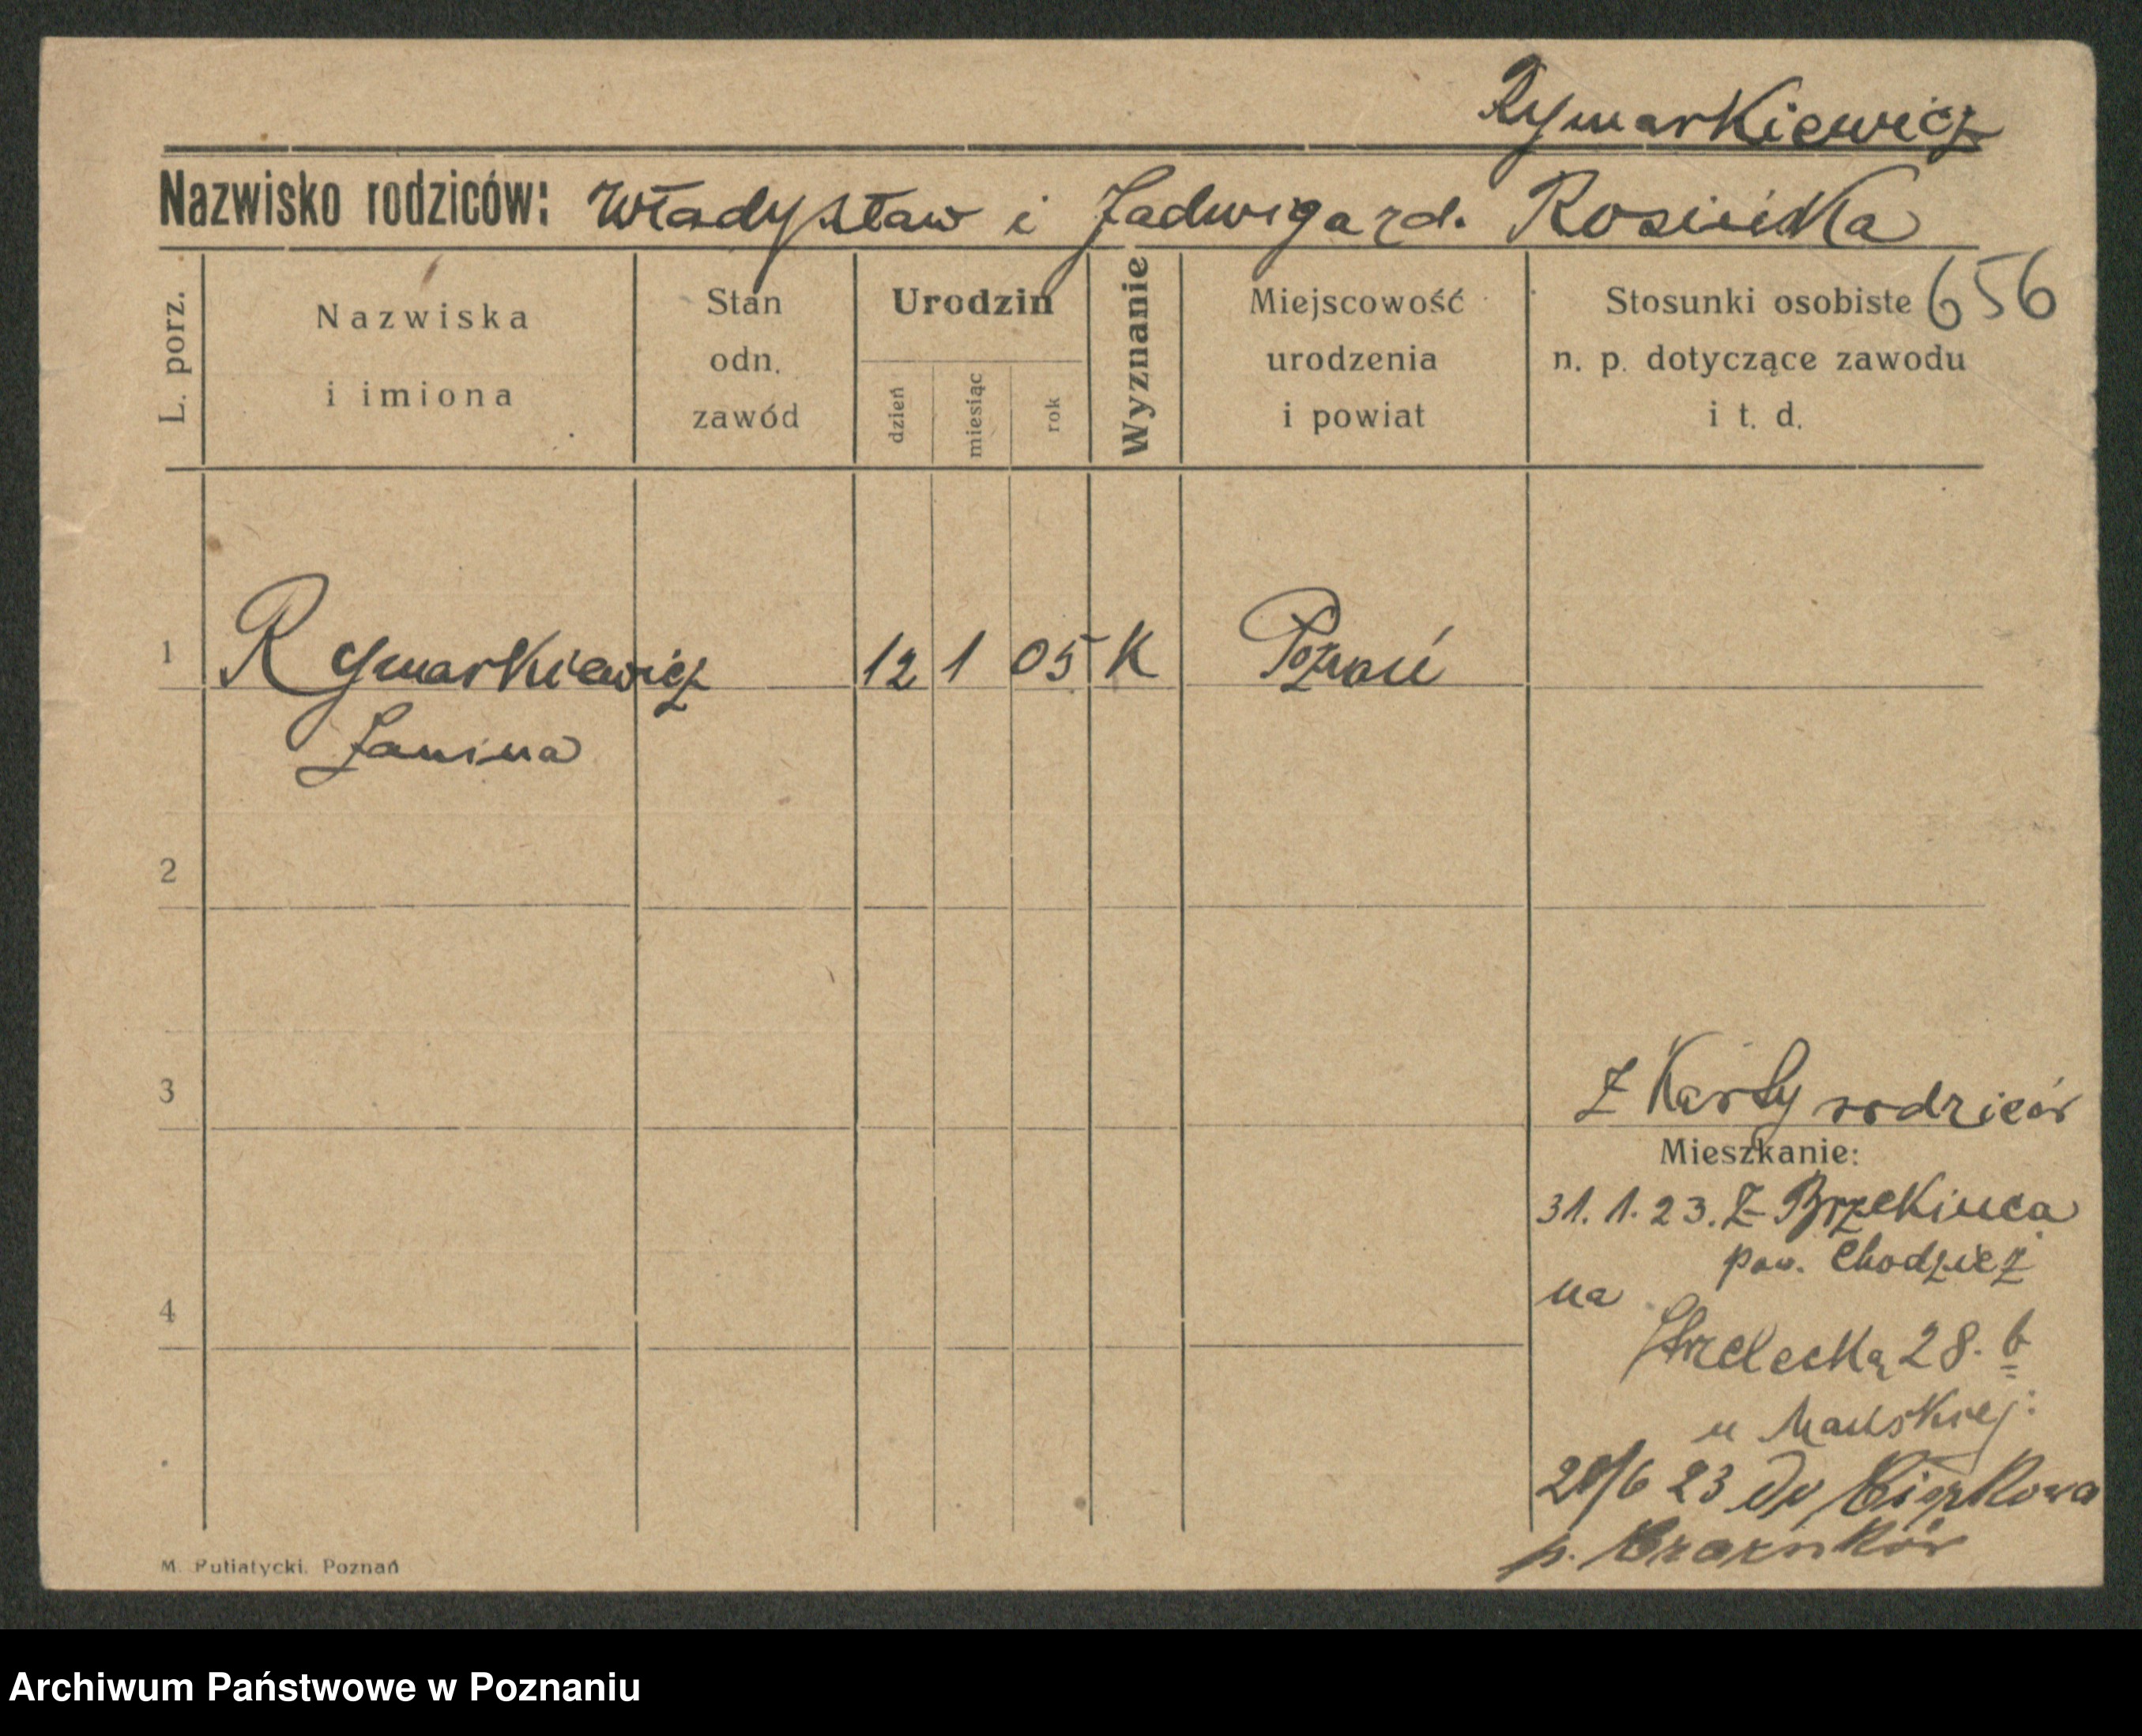 Rymarkiewicz
Nazwisko rodziców: Władysław i Jadwiga zd. Rosińska
L. porz.
Nazwiska
i imiona
Stan
odn.
zawód
Urodzin
dzień
miesiąc
rok
Wyznanie
Miejscowość
urodzenia
i powiat
Stosunki osobiste 656
n. p. dotyczące zawodu
i t. d.
1 Rymarkiewicz 12 1 05 K Poznań
Janina
2
3
Z Karty rodziców
Mieszkanie:
31. 1. 23. Z Brzekińca
pow. Chodzież
na
4
Strzelecką 28. b
u Mańskiej.
23 do
p. Czarnków
M. Putiatycki. Poznań
Archiwum Państwowe w Poznaniu